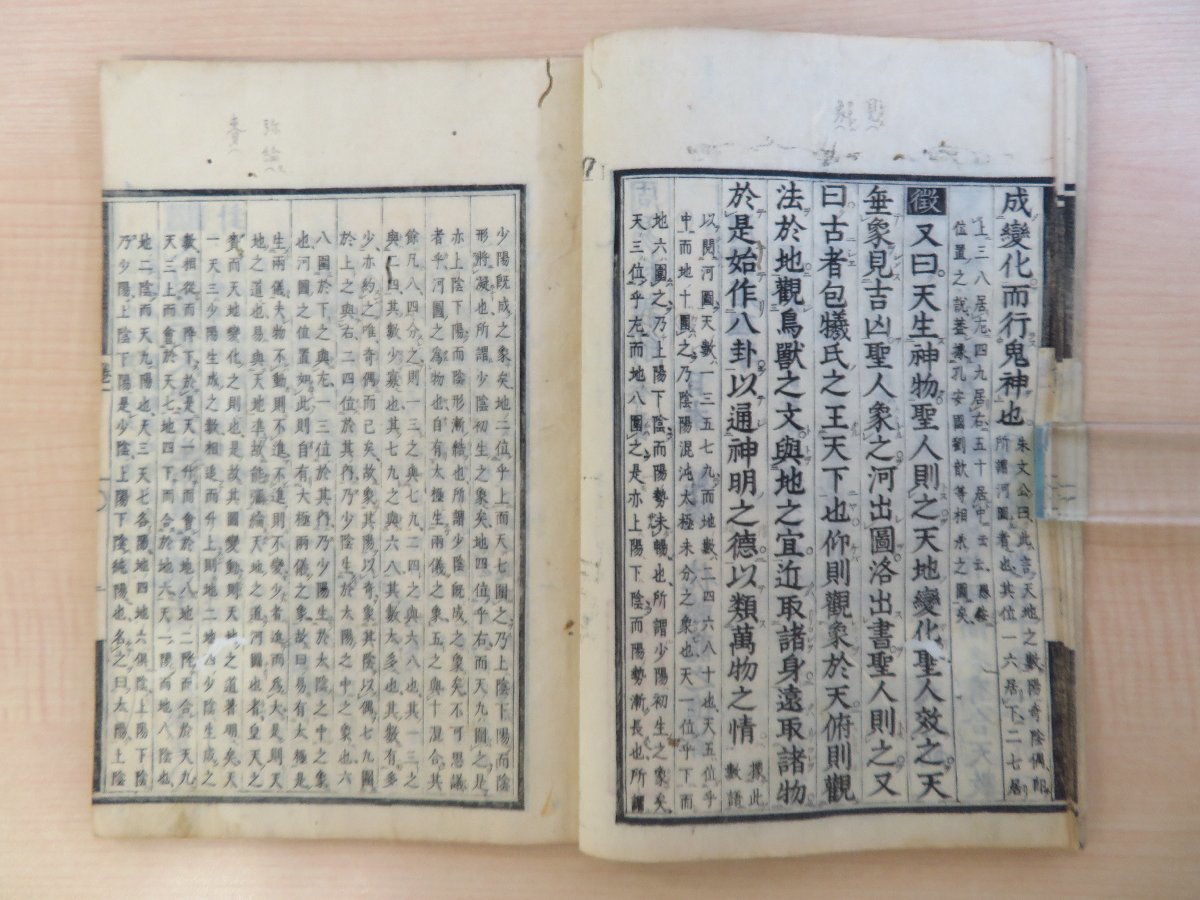 成變化而行鬼神也
朱文公曰此言天地之數陽奇陰偶即
所謂河圖者也其位一六居下二七居
上三八居左四九居右五十居中云云愚按
位置之說蓋據孔安國劉歆等相承之圖矣
徵又曰天生神物聖人則之天地變化聖人效之天
垂象見吉凶聖人象之河出圖洛出書聖人則之又
曰古者包犧氏之王天下也仰則觀象於天俯則觀
法於地觀鳥獸之文與地之宜近取諸身遠取諸物
於是始作八卦以通神明之德以類萬物之情
據此
數語
以閱河圖天數一三五七九而地數二四六八十也天五位乎
中而地十圍之乃陰陽混沌太極未分之象也天一位乎下而
地六圍之乃上陽下陰而陽勢未暢也所謂少陽初生之象矣
天三位乎左而地八圍之是亦上陽下陰而陽勢漸長也所謂
少陽既成之象矣地二位乎上而天七圍之乃上陰下陽而陰
形將凝也所謂少陰初生之象矣地四位乎右而天九圍之是
亦上陰下陽而陰形漸結也所謂少陰既成之象矣不可思議
者乎河圖之為物也自有太極生兩儀之象五之與十混合其
餘凡八四分之則一三之與七九二四之與六八也其一三之
與二四其數少寡也其七九之與六八其數大多也其數有多
少亦約之唯奇偶而已矣故象其陽以奇象其陰以偶七九圍
於上之與右二四位於其內乃少陰生於太陽之中之象也六
八圍於下之與左一三位於其內乃少陽生於太陰之中之象
也河圖之位置如此則自有太極兩儀之象故曰易有太極是
生兩儀夫物不動則不進不進則不變少者進而為大是則天
地之道也易與天地準故能彌綸天地之道河圖也者皇天之
賚而天地變化之則也是故其圖變動則天地之道著明矣天
一天三少陽生成之數相追而升上則地二地四少陰生成之
數相從而降下於是天一升而會於地八地二降而合於天九
天三上而會於天七地四下而合於地六天一同而地八陰也
地二陰而天九陽也天三天七各陽地四地六俱陰上陽下陰
乃少陽上陰下陽是少陰上陽下陰純陽也名之曰太陽上陰